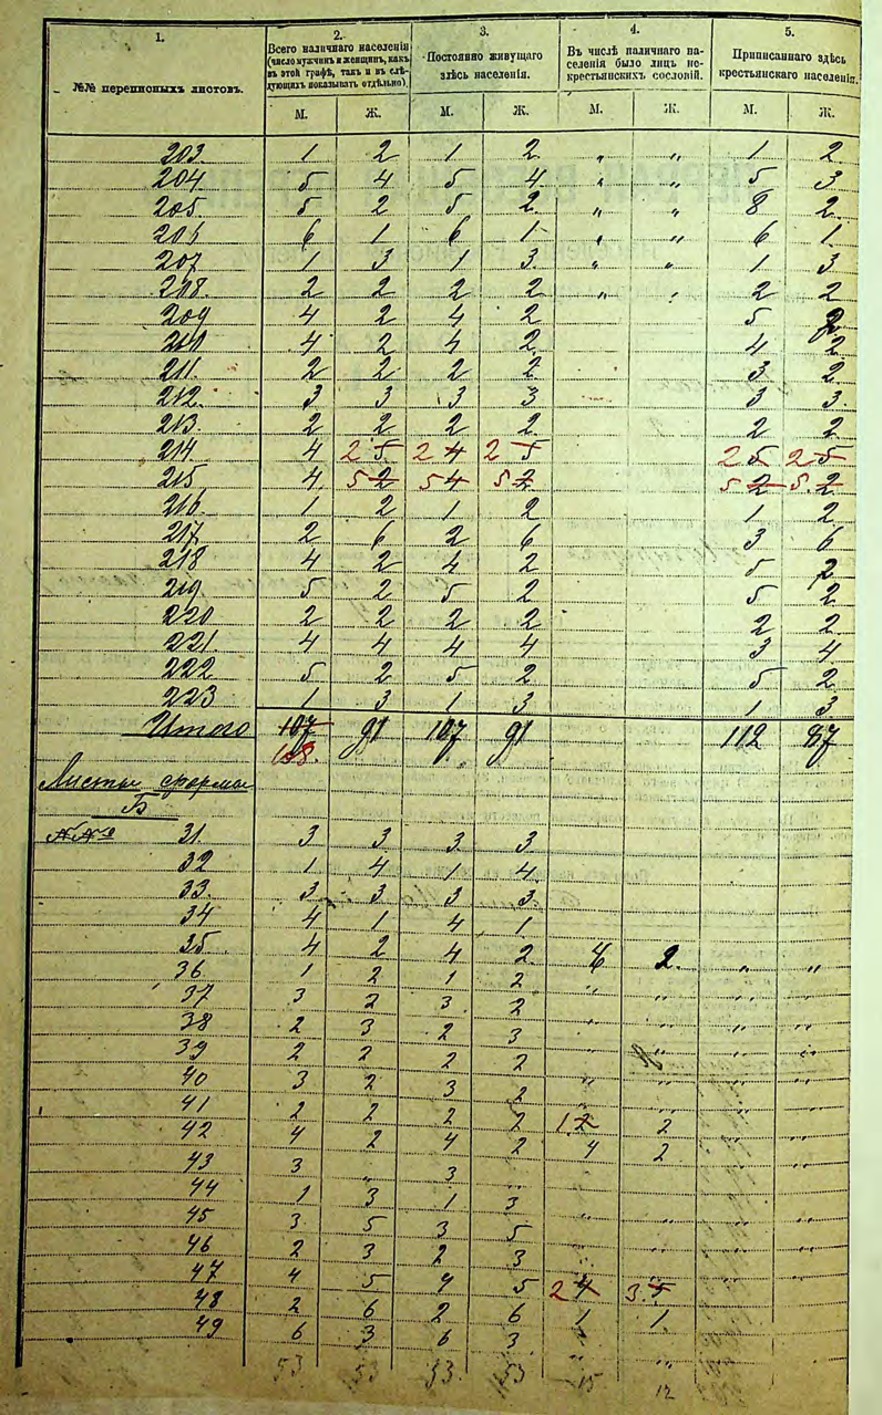 1. 2. 3. 4. 5.
№№ переписныхъ листовъ. Всего наличнаго населенія (число мужчинъ и женщинъ, какъ въ этой графѣ, такъ и въ слѣдующихъ показывать отдѣльно). Постоянно живущаго здѣсь населенія. Въ числѣ наличнаго населенія было лицъ некрестьянскихъ сословій. Приписаннаго здѣсь крестьянскаго населенія.
М. Ж. М. Ж. М. Ж. М. Ж.
203. 1 2 1 2 „ „ 1 2
204. 5 4 5 4 „ „ 5 3
205. 5 2 5 2 „ „ 8 2
206 6 1 6 1 „ „ 6 1
207 1 3 1 3 „ „ 1 3
208. 2 2 2 2 „ „ 2 2
209 4 2 4 2 5
210 4 2 4 2 4 2
211. 2 2 2 2 3 2
212. 3 3 3 3 3 3
213. 2 2 2 2 2 2
214 4 2 5 2 4 2 5 2 5 2 5
215 4 5 2 5 4 5 2 5 2 5 2
216 1 2 1 2 1 2
217 2 6 2 6 3 6
218 4 2 4 2 5 2
219 5 2 5 2 5 2
220 2 2 2 2 2 2
221. 4 4 4 4 3 4
222 5 2 5 2 5 2
223 1 3 1 3 1 3
Итого 107 91 107 91 112 87
108.
Листы формы
Б
№№ 31. 3 3 3 3
32 1 4 1 4
33. 3 3 3 3
34 4 1 4 1
35 4 2 4 2 4 2 „ „
36 1 2 1 2 „ „ „ „
37 3 2 3 2 „ „ „ „
38 2 3 2 3 „ „ „ „
39 2 2 2 2 „ „ „ „
40 3 2 3 2 „ „ „ „
41 2 2 2 2 1 2 2
42 4 2 4 2 4 2 „ „
43 3 „ 3 „
44 1 3 1 3 „ „ „ „
45 3 5 3 5 „ „ „ „
46 2 3 2 3 „ „ „ „
47 4 5 4 5 2 4 3 5
48 2 6 2 6 1 1
49 6 3 6 3 „ „
53 53 53 53 15 12